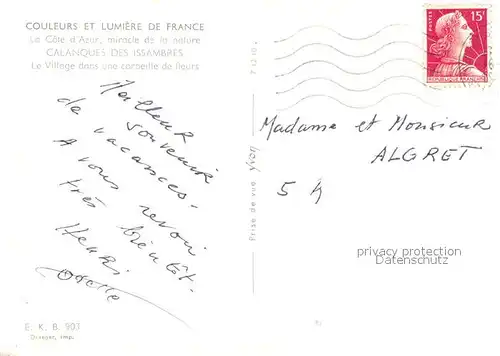 COULEURS ET LUMIÈRE DE FRANCE
La Côte d'Azur, miracle de la nature
CALANQUES DES ISSAMBRES
Le Village dans une corbeille de fleurs
Meilleur
souvenir
de vacances.
A vous revoir
très bientôt.
Henri
Odette
E. K. B. 903
Draeger, imp.
Prise de vue Yvon
POSTES
15F
REPUBLIQUE FRANÇAISE
Madame et Monsieur
ALGRET
5 A
privacy protection
Datenschutz